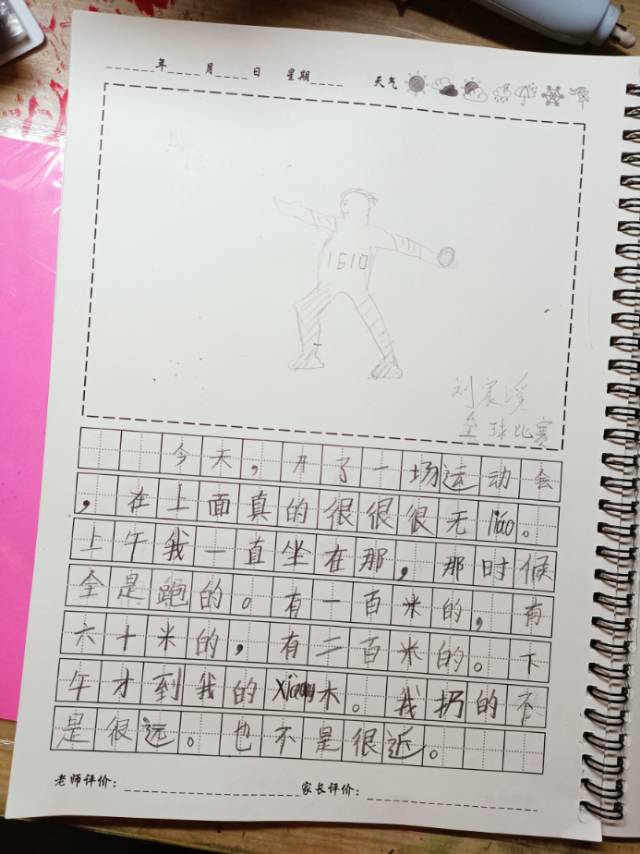 年 月 日 星期 天气
1610
刘宸溪
垒球比赛
今天，开了一场运动会
，在上面真的很很很无liáo。
上午我一直坐在那，那时候
全是跑的。有一百米的，有
六十米的，有二百米的。下
午才到我的xiàng木。我扔的不
是很远。也不是很近。
老师评价： 家长评价：